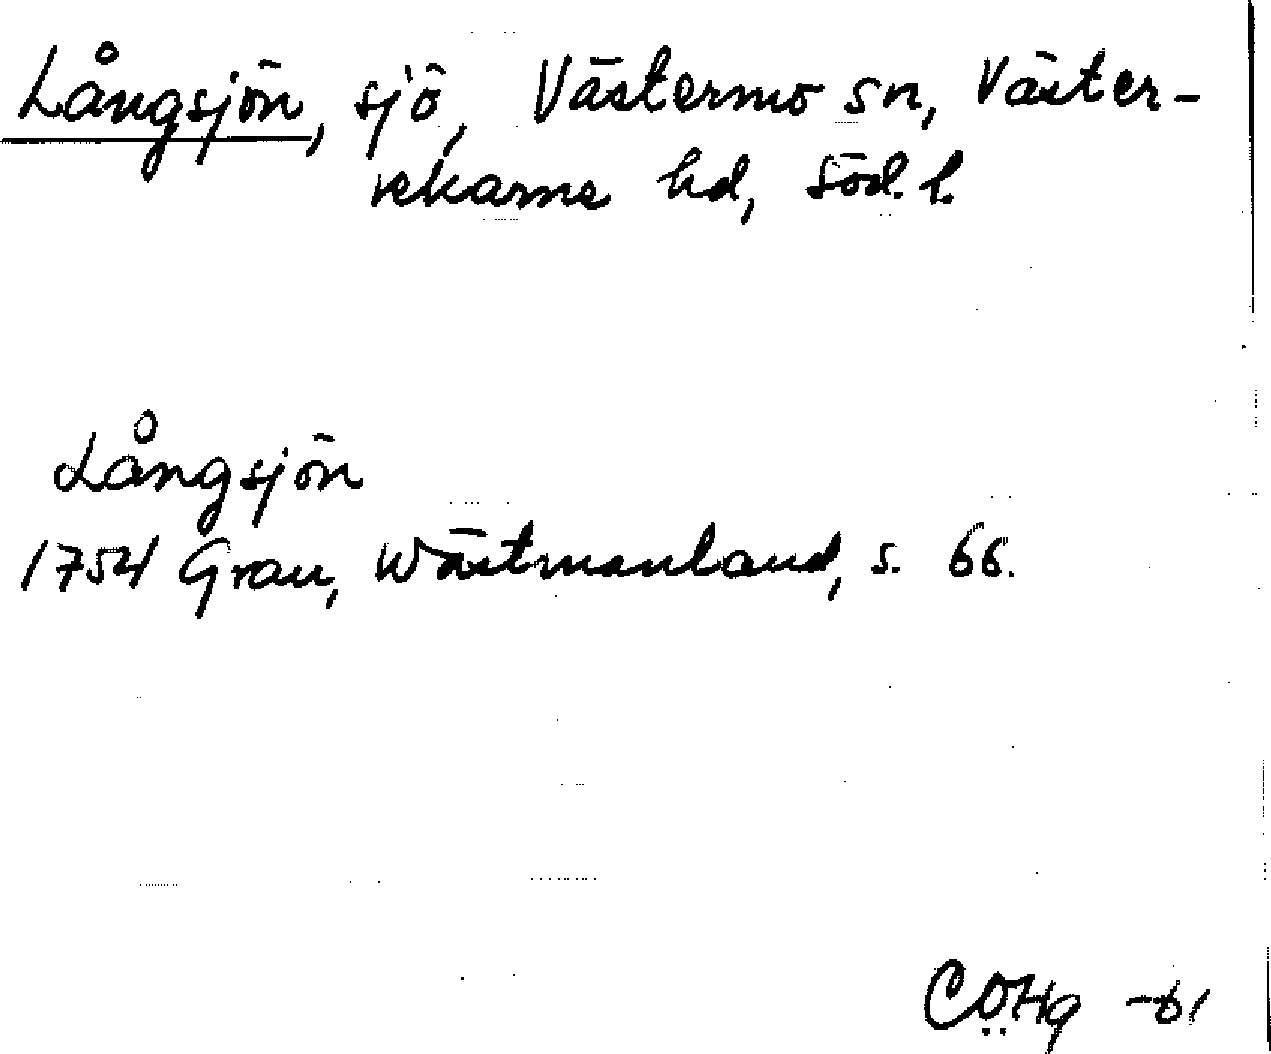 Långsjön, sjö, Västermo sn, Väster-
rekarne hd, Söd. l.
Långsjön
1754 Grau, Wästmanland, s. 66.
CÖHg -61